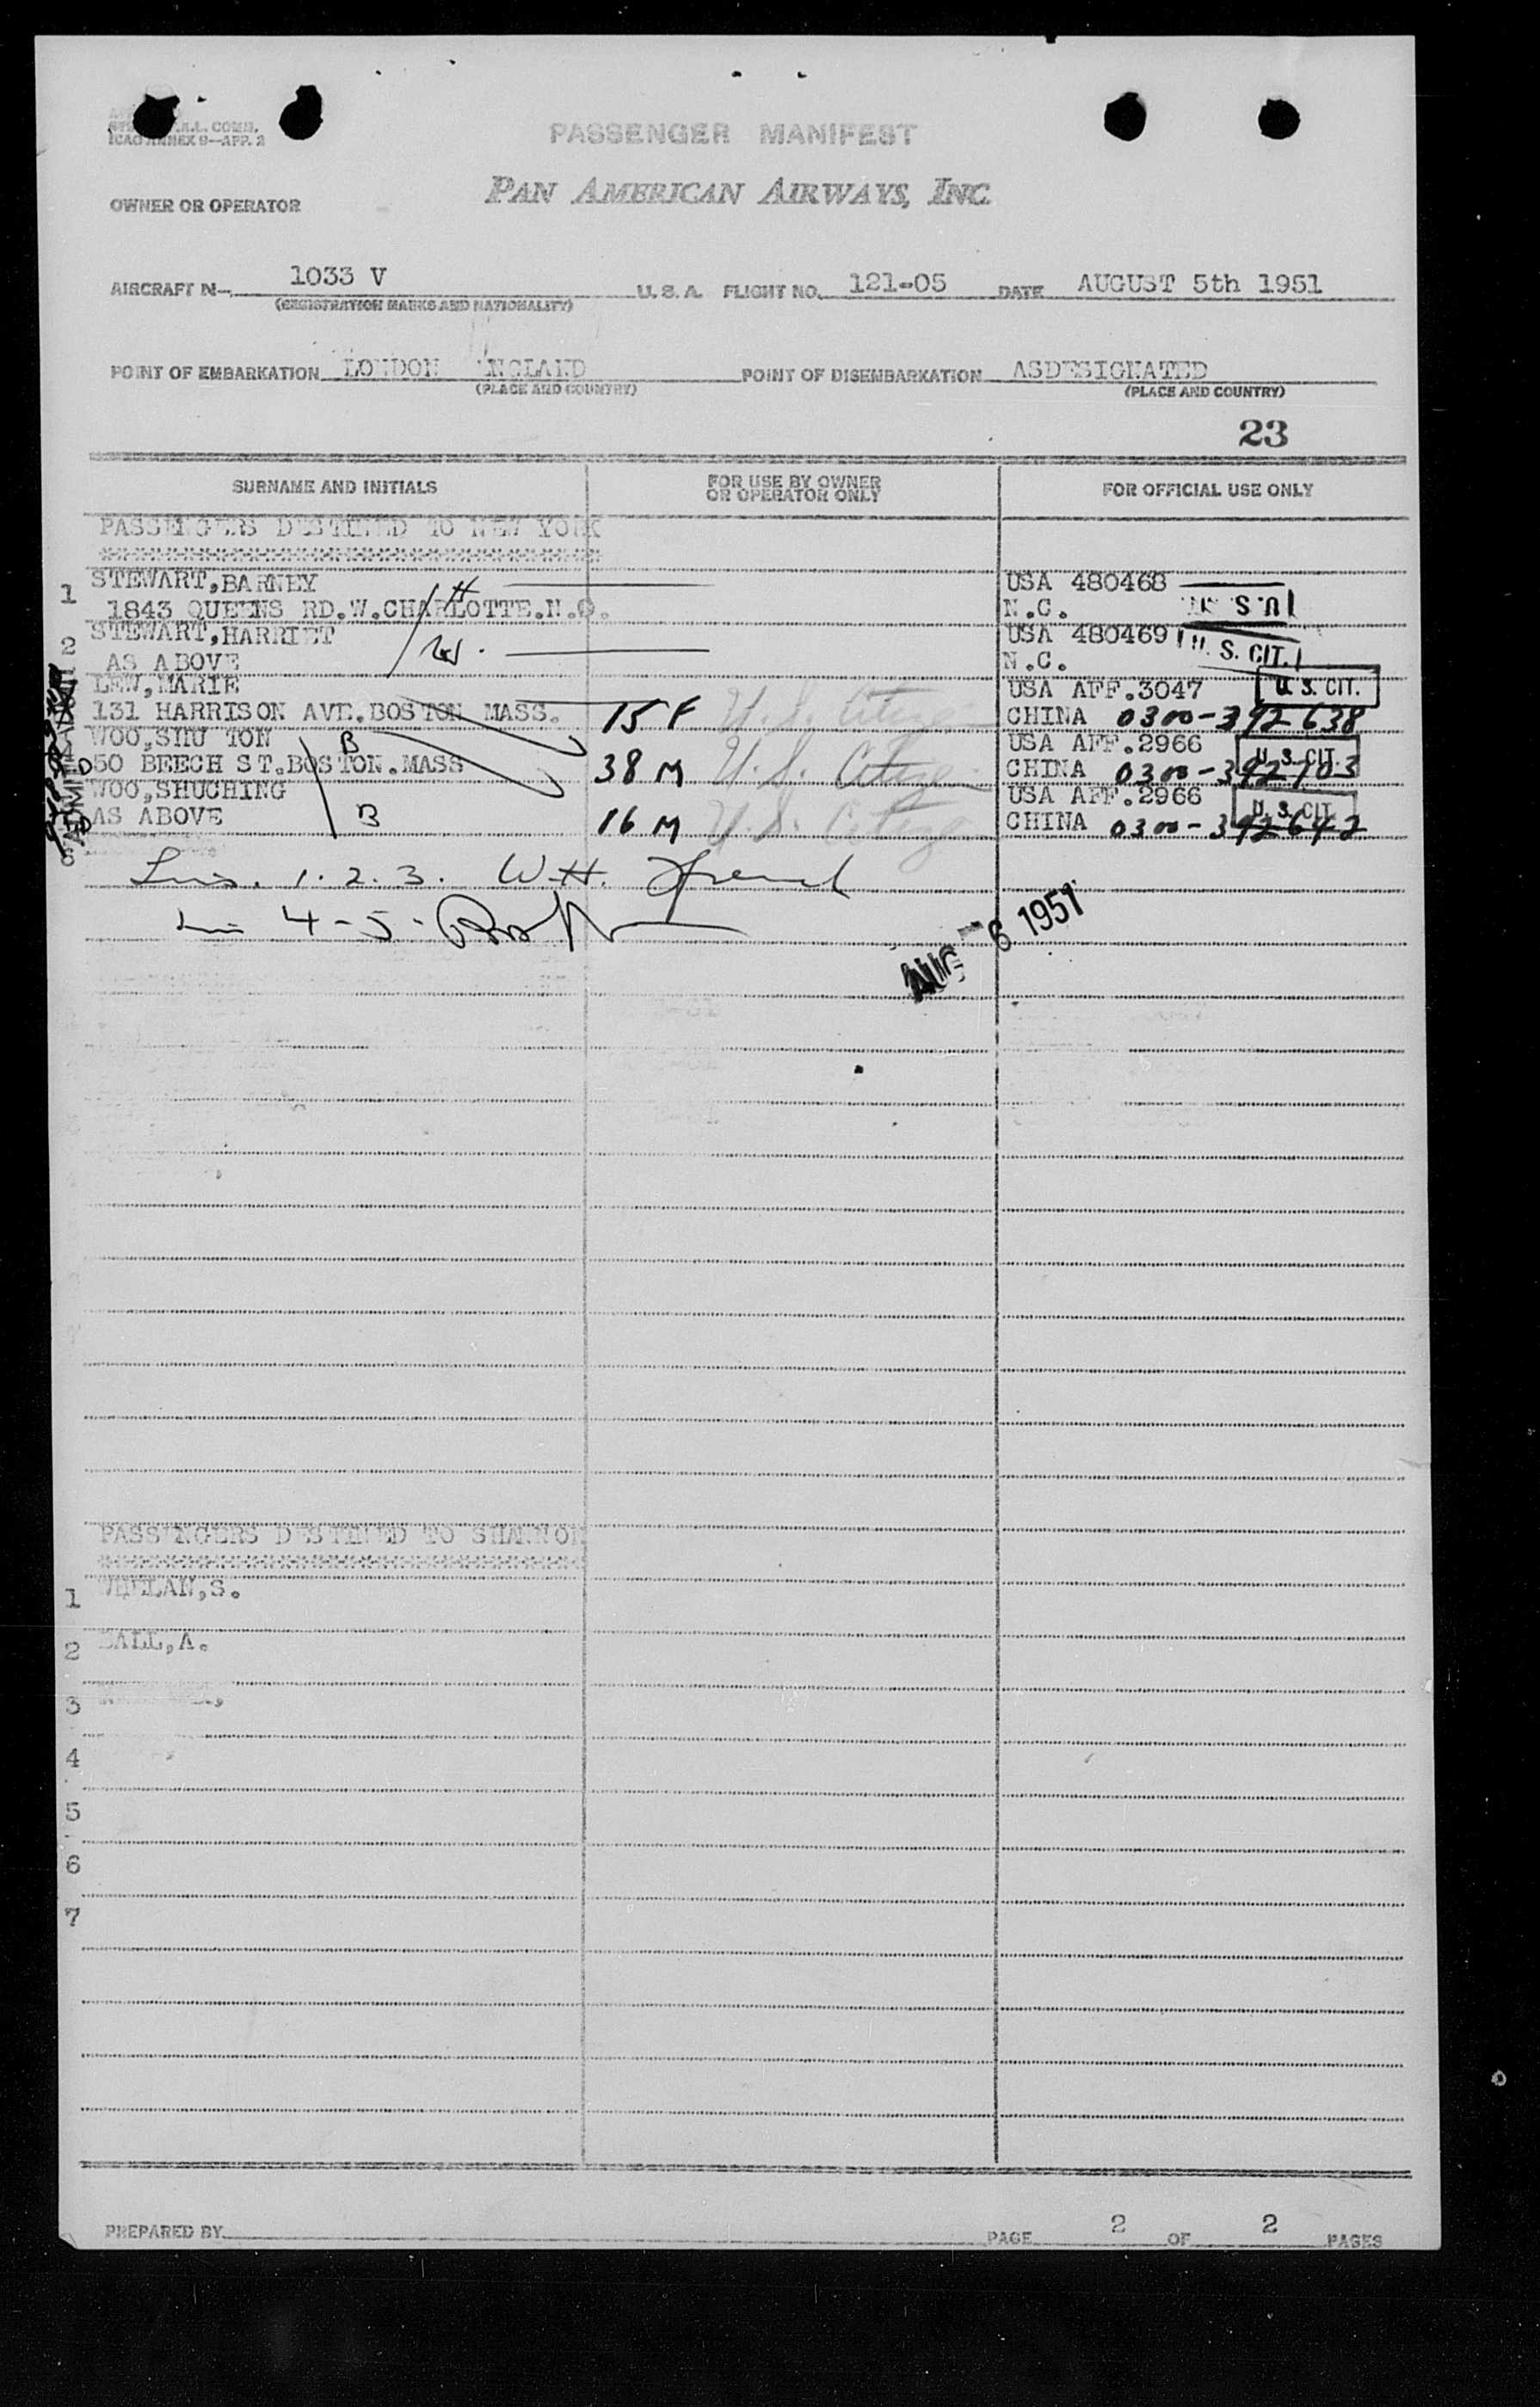 ICAO ANNEX 9—APP. 2
PASSENGER MANIFEST
OWNER OR OPERATOR
PAN AMERICAN AIRWAYS, INC.
AIRCRAFT N—. 1033 V U.S.A. FLIGHT NO. 121-05 DATE AUGUST 5th 1951
(REGISTRATION MARKS AND NATIONALITY)
POINT OF EMBARKATION LONDON NGLAND POINT OF DISEMBARKATION ASDESIGNATED
(PLACE AND COUNTRY) (PLACE AND COUNTRY)
23
SURNAME AND INITIALS FOR USE BY OWNER OR OPERATOR ONLY FOR OFFICIAL USE ONLY
PASSENGERS DESTINED TO NEW YORK
1 STEWART,BARNEY H USA 480468
1843 QUEENS RD.W.CHARLOTTE.N.C. N.C. U.S.
2 STEWART,HARRIET W. USA 480469
AS ABOVE N.C. U. S. CIT.
LEW,MARIE USA AFF.3047 U. S. CIT.
131 HARRISON AVE.BOSTON MASS. 15 F U.S. Citizen CHINA 0300-392638
WOO,SHU TON B USA AFF.2966
50 BEECH ST.BOSTON.MASS 38 M U.S. Citizen CHINA 0300-392703 U. S. CIT.
WOO,SHUCHING USA AFF.2966
AS ABOVE B 16 M U.S. Citizen CHINA 0300-392642 U. S. CIT.
6
Lins. 1. 2. 3. W.H. French
4-5-
AUG 6 1951
PASSENGERS DESTINED TO SHANNON
1 WHELAN,S.
2 BALL,A.
3
4
5
6
7
PREPARED BY PAGE 2 OF 2 PAGES